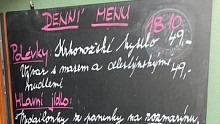 DENNÍ MENU 18.10.
Polévky: Krkonošské kyselo 49,-
Vývar s masem a dělijskými 49,-
nudlemi
Hlavní jídlo:
Medailonky z panenky na rozmarýnu,